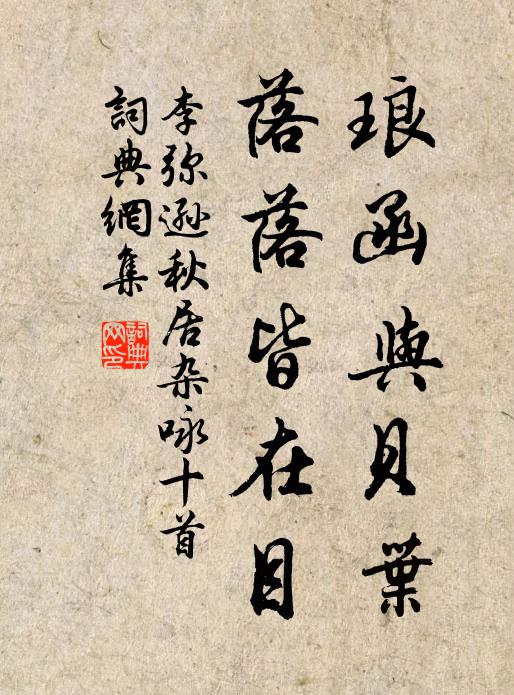 琅函與貝葉
落落皆在目
李弥遜秋居杂咏十首
詞典網集
詞典網印